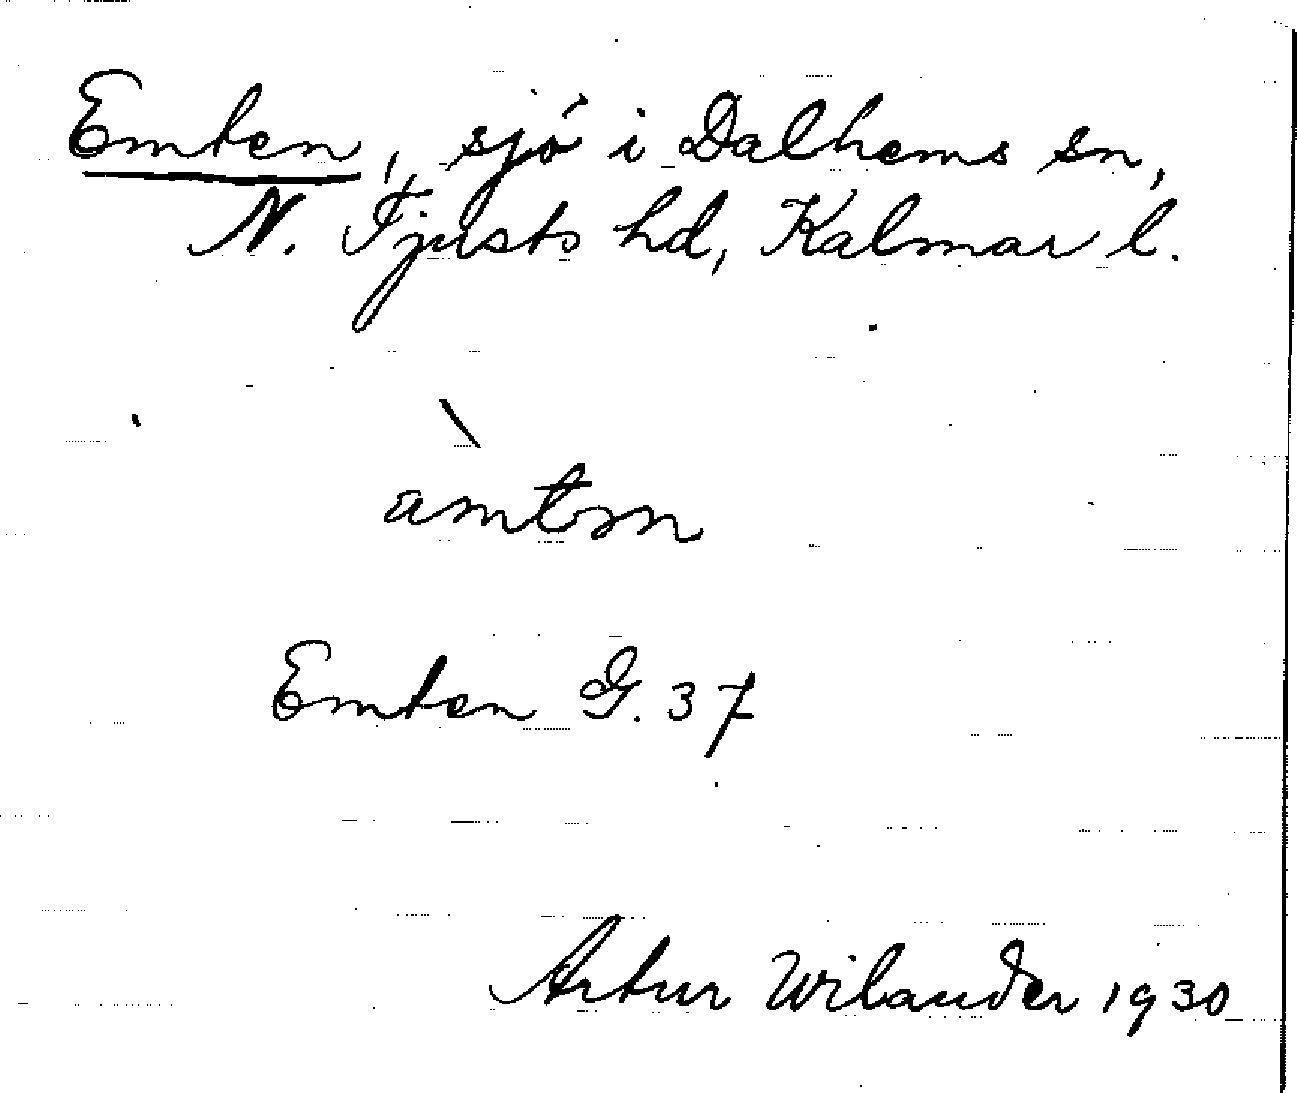 Emten, sjö i Dalhems sn,
N. Tjusts hd, Kalmar l.
àmtsn
Emten G. 37
Artur Wilander 1930